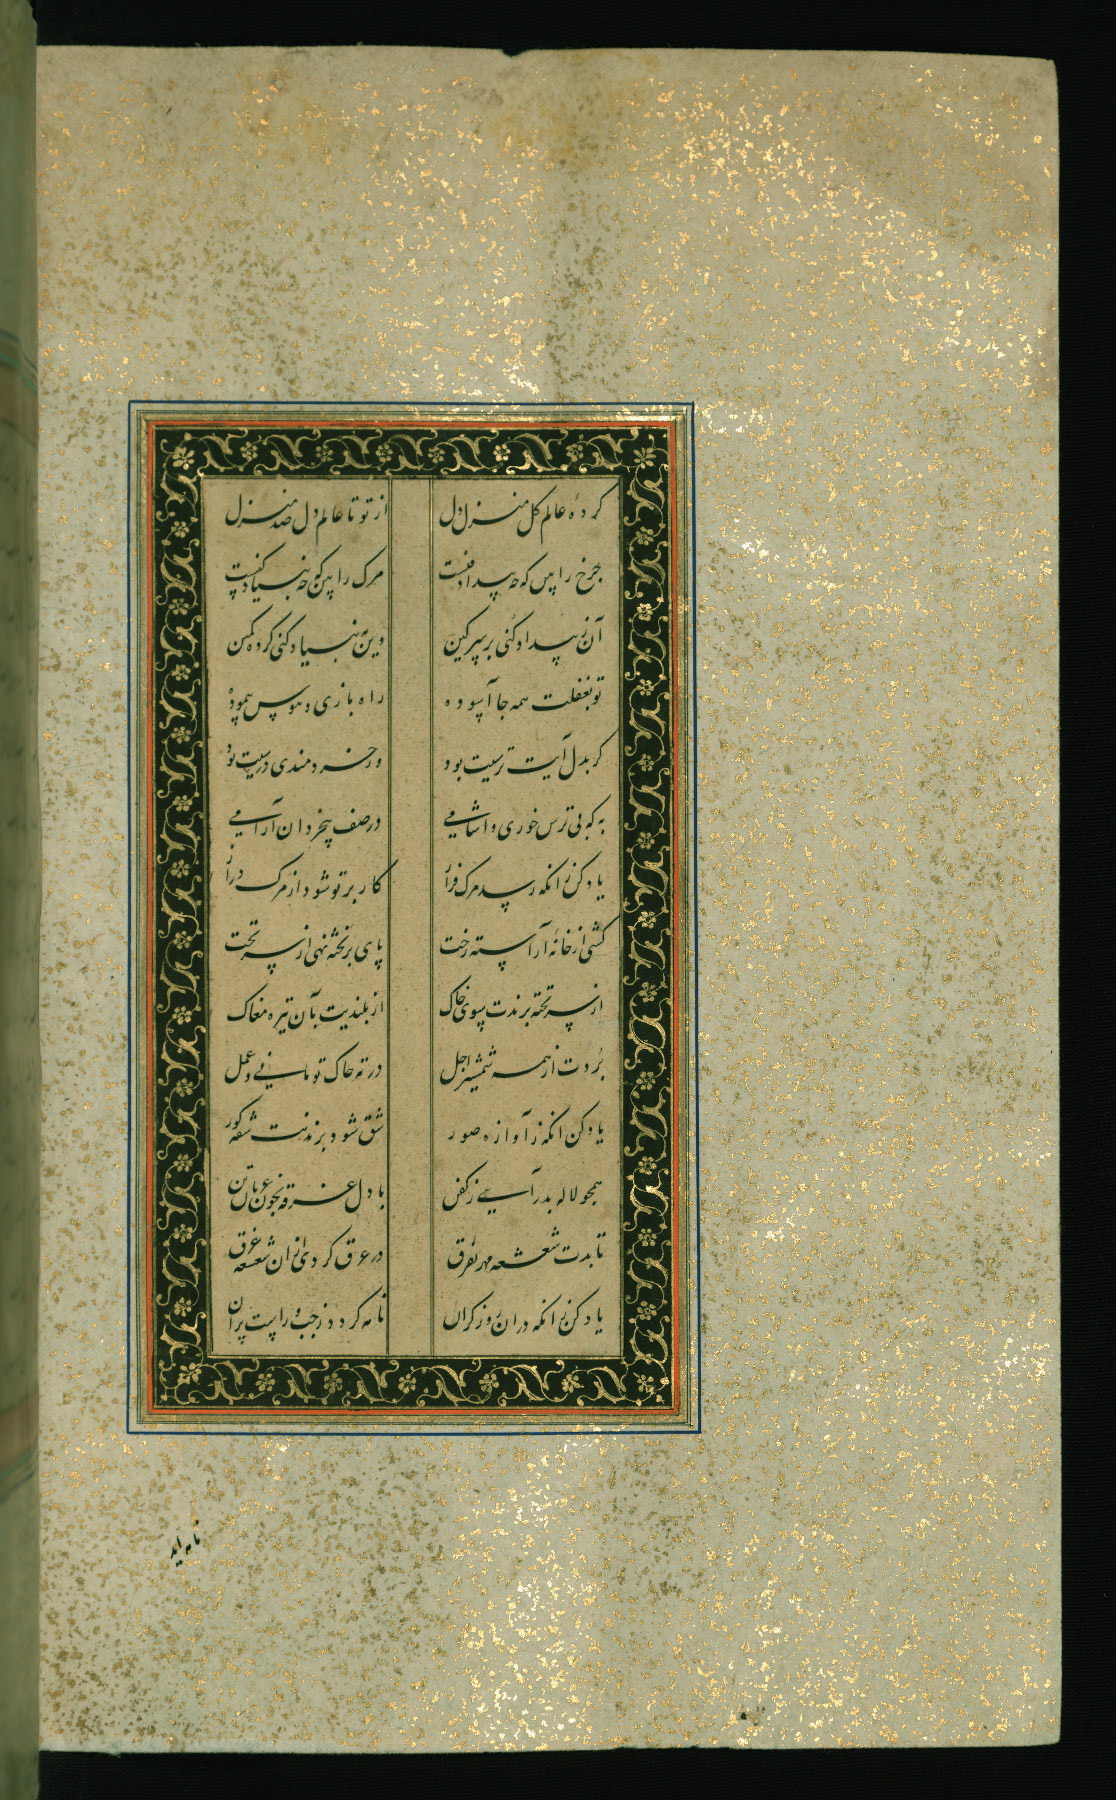 کرده‌ٔ عالم کل منزل دل از تو تا عالم دل صد منزل
چرخ را بین که چه بیداد فنست مرک را بین که چه بنیاد کنست
آن ز بیداد کنی بر سر کین وین به بنیاد کنی کرده کمین
تو بغفلت همه جا آسوده راه بازی و هوس پیموده
کر بدل آیت ترسیت بود ور خردمندی درسیت بود
به که بی ترس خوری و آشامی در صف بیخردان آرامی
یاد کن زانکه رسد مرک فراز کار بر تو شود از مرک دراز
کشی از خانهٔ آراسته رخت پای بر تخته نهی از سر تخت
از سر تخته برندت سوی خاک از بلندیت بآن تیره مغاک
بُردت از همه شمشیر اجل در ته خاک تو مانی و عمل
یاد کن زانکه ز آوازه صور شق شود بر بدنت شقه کور
همچو لاله بدر آیی ز کفن با دل غرقه بخون عریان تن
تابدت شعشعه مهر بفرق در عرق کردی ازان شعشعه غرق
یاد کن زانکه دران روز کران نامه کردد ز چپ و راست پران
نامه آید